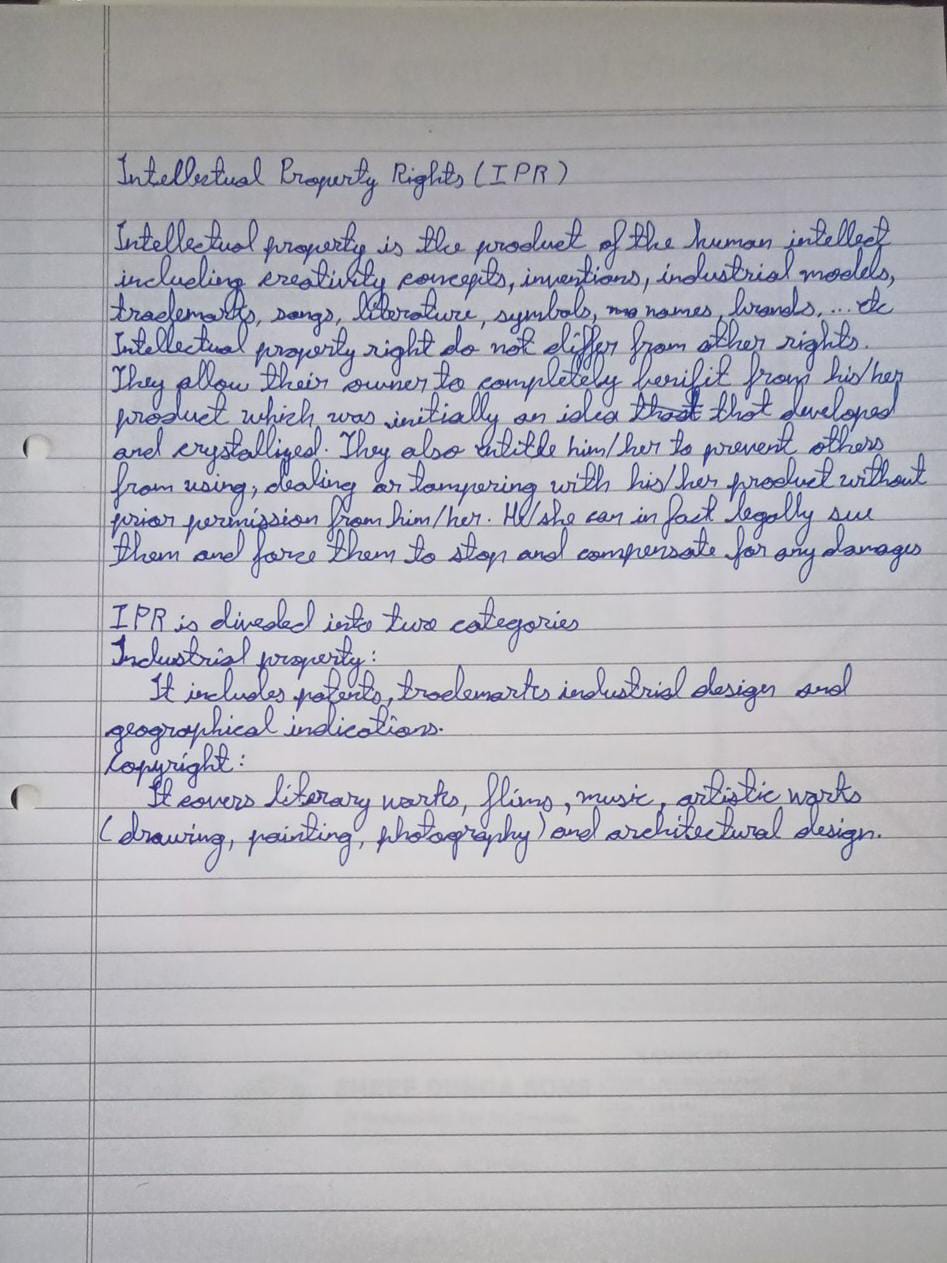 Intellectual Property Rights (IPR)
Intellectual property is the product of the human intellect
including creativity concepts, inventions, industrial models,
trademarks, songs, literature, symbols, names, brands, ... etc
Intellectual property right do not differ from other rights.
They allow their owner to completely benifit from his/her
product which was initially an idea that developed
and crystallized. They also entitle him/her to prevent others
from using, dealing or tampering with his/her product without
prior permission from him/her. He/she can in fact legally sue
them and force them to stop and compensate for any damages
IPR is diveded into two categories
Industrial property:
It includes patents, trademarks industrial design and
geographical indications.
Copyright:
It covers literary works, flims, music, artistic works
(drawing, painting, photography) and architectural design.